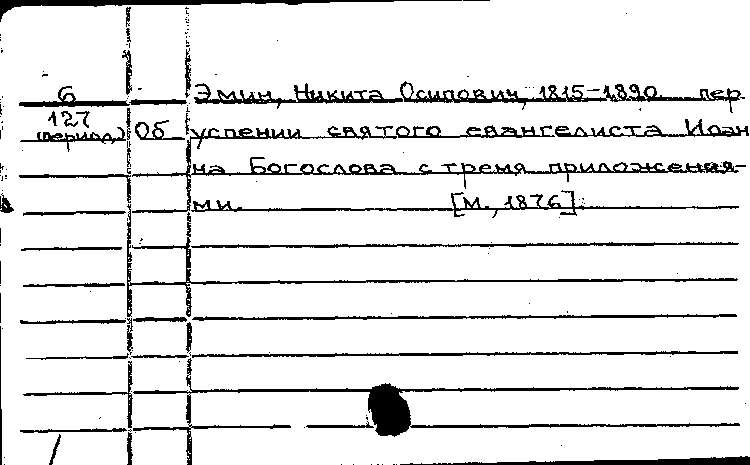 6 Эмин, Никита Осипович, 1815-1890. пер.
127 (период.) Об успении святого евангелиста Иоан
на Богослова с тремя приложения-
ми. [М., 1876].